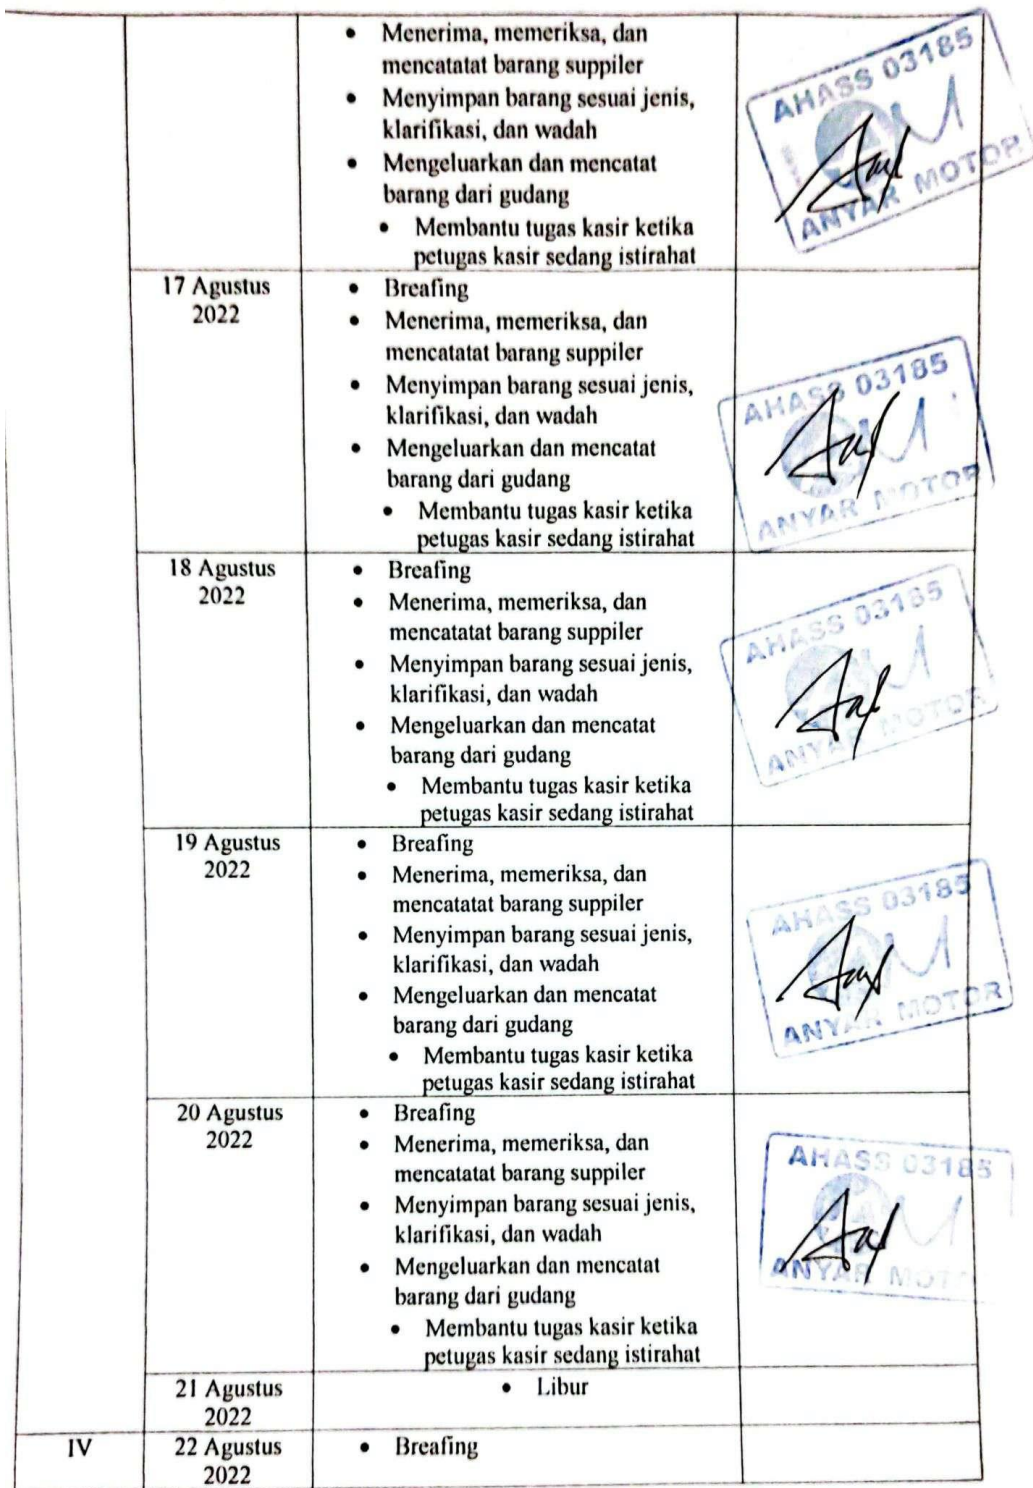 • Menerima, memeriksa, dan
mencatatat barang suppiler
• Menyimpan barang sesuai jenis,
klarifikasi, dan wadah
• Mengeluarkan dan mencatat
barang dari gudang
• Membantu tugas kasir ketika
petugas kasir sedang istirahat
AHASS 03185
ANYAR MOTOR
17 Agustus
2022
• Breafing
• Menerima, memeriksa, dan
mencatatat barang suppiler
• Menyimpan barang sesuai jenis,
klarifikasi, dan wadah
• Mengeluarkan dan mencatat
barang dari gudang
• Membantu tugas kasir ketika
petugas kasir sedang istirahat
AHASS 03185
ANYAR MOTOR
18 Agustus
2022
• Breafing
• Menerima, memeriksa, dan
mencatatat barang suppiler
• Menyimpan barang sesuai jenis,
klarifikasi, dan wadah
• Mengeluarkan dan mencatat
barang dari gudang
• Membantu tugas kasir ketika
petugas kasir sedang istirahat
AHASS 03185
ANYAR MOTOR
19 Agustus
2022
• Breafing
• Menerima, memeriksa, dan
mencatatat barang suppiler
• Menyimpan barang sesuai jenis,
klarifikasi, dan wadah
• Mengeluarkan dan mencatat
barang dari gudang
• Membantu tugas kasir ketika
petugas kasir sedang istirahat
AHASS 03185
ANYAR MOTOR
20 Agustus
2022
• Breafing
• Menerima, memeriksa, dan
mencatatat barang suppiler
• Menyimpan barang sesuai jenis,
klarifikasi, dan wadah
• Mengeluarkan dan mencatat
barang dari gudang
• Membantu tugas kasir ketika
petugas kasir sedang istirahat
AHASS 03185
ANYAR MOT
21 Agustus
2022
• Libur
IV
22 Agustus
2022
• Breafing